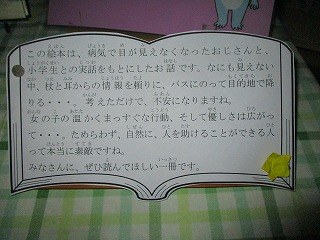 この絵本は、病気で目が見えなくなったおじさんと、
小学生との実話をもとにしたお話です。なにも見えない
中、杖と耳からの情報を頼りに、バスにのって目的地で降
りる・・・。考えただけで、不安になりますね。
女の子の温かくまっすぐな行動、そして優しさは広がっ
て・・・。ためらわず、自然に、人を助けることができる人
って本当に素敵ですね。
みなさんに、ぜひ読んでほしい一冊です。